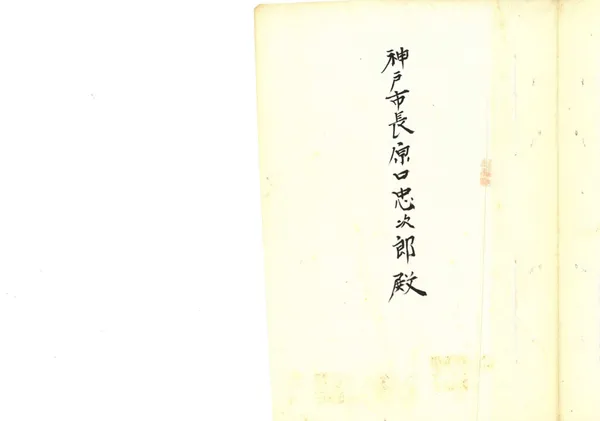 神戸市長原口忠次郎殿